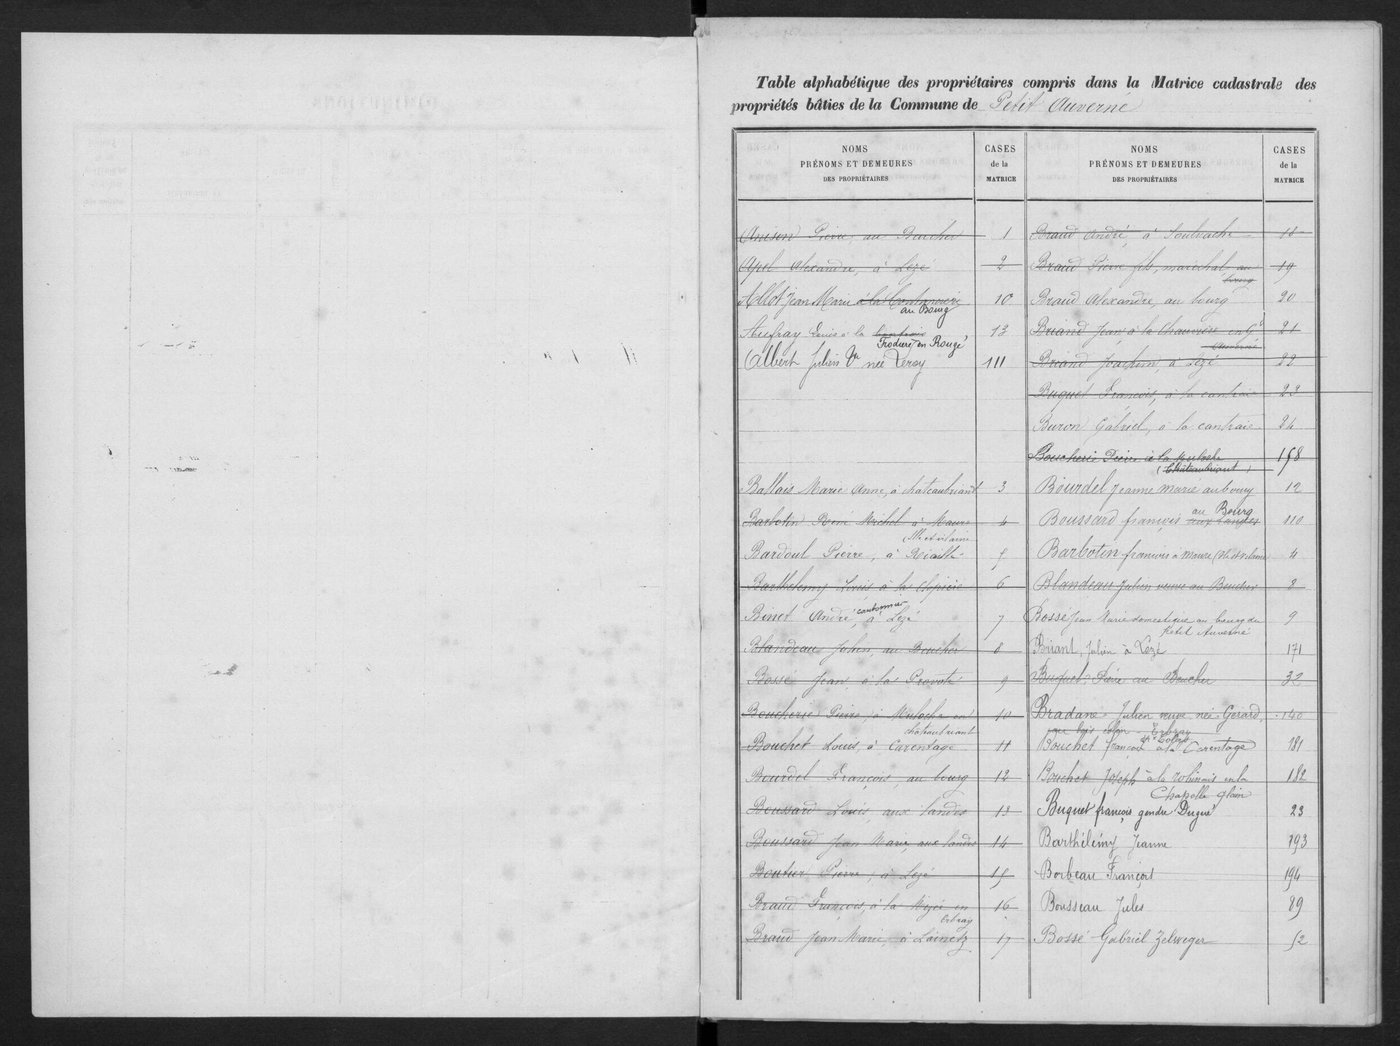 Table alphabétique des propriétaires compris dans la Matrice cadastrale des
propriétés bâties de la Commune de Petit Auverné
NOMS
PRÉNOMS ET DEMEURES
DES PROPRIÉTAIRES
CASES
de la
MATRICE
Pierre, au Boucher 1
Apel Alexandre, à Lezé 2
Allot Jean Marie à la 10
au Bourg
Aufray Louis à la 13
en Rougé
Albert Julien Vve née Leray 111
Ballais Marie Anne, à chateaubriant 3
Barbotin René Michel à Maure 4
Ille et vilaine
Bardoul Pierre, à Riaillé 5
Barthélemy Louis, à la 6
Binet André cantonnier à Lezé 7
Blandeau Julien, au Boucher 8
Bossé Jean, à la 9
Boucherie Pierre, à en 10
chateaubriant
Bouchet Louis, à Carentage 11
Bourdel François, au bourg 12
Boussard Louis, aux landes 13
Boussard Jean Marie, aux landes 14
Boutier Pierre, à Lezé 15
Braud François, à la en 16
Erbray
Braud Jean Marie, à 17
NOMS
PRÉNOMS ET DEMEURES
DES PROPRIÉTAIRES
CASES
de la
MATRICE
Braud André, à Soulvache 18
Braud Pierre fils, maréchal au 19
bourg
Braud Alexandre, au bourg 20
Briand Jean, à la en Gd 21
Auverné
Briand Joachim, à Lezé 22
Buquet François, à la cantrais 23
Buron Gabriel, à la cantraie 24
Boucherie Pierre à la 158
(Châteaubriant)
Bourdel Jeanne Marie au bourg 12
Boussard françois aux Landes au Bourg 110
Barbotin françois à Maure (Ille et vilaine 4
Blandeau Julien veuve au Boucher 8
Bossé Jean Marie domestique au bourg du 9
Petit Auverné
Briant, Julien à Lezé 171
Buquet, Pierre au Boucher 32
Bradane Julien veuve née Gérard, 140
Erbray
Bouchet françois à la Carentage 181
Bouchet Joseph à la Robinais en la 182
Chapelle glain
Buquet françois gendre Dugué 23
Barthélémy Jeanne 193
Borbeau François 194
Bousseau Jules 89
Bossé Gabriel Zelweger 52